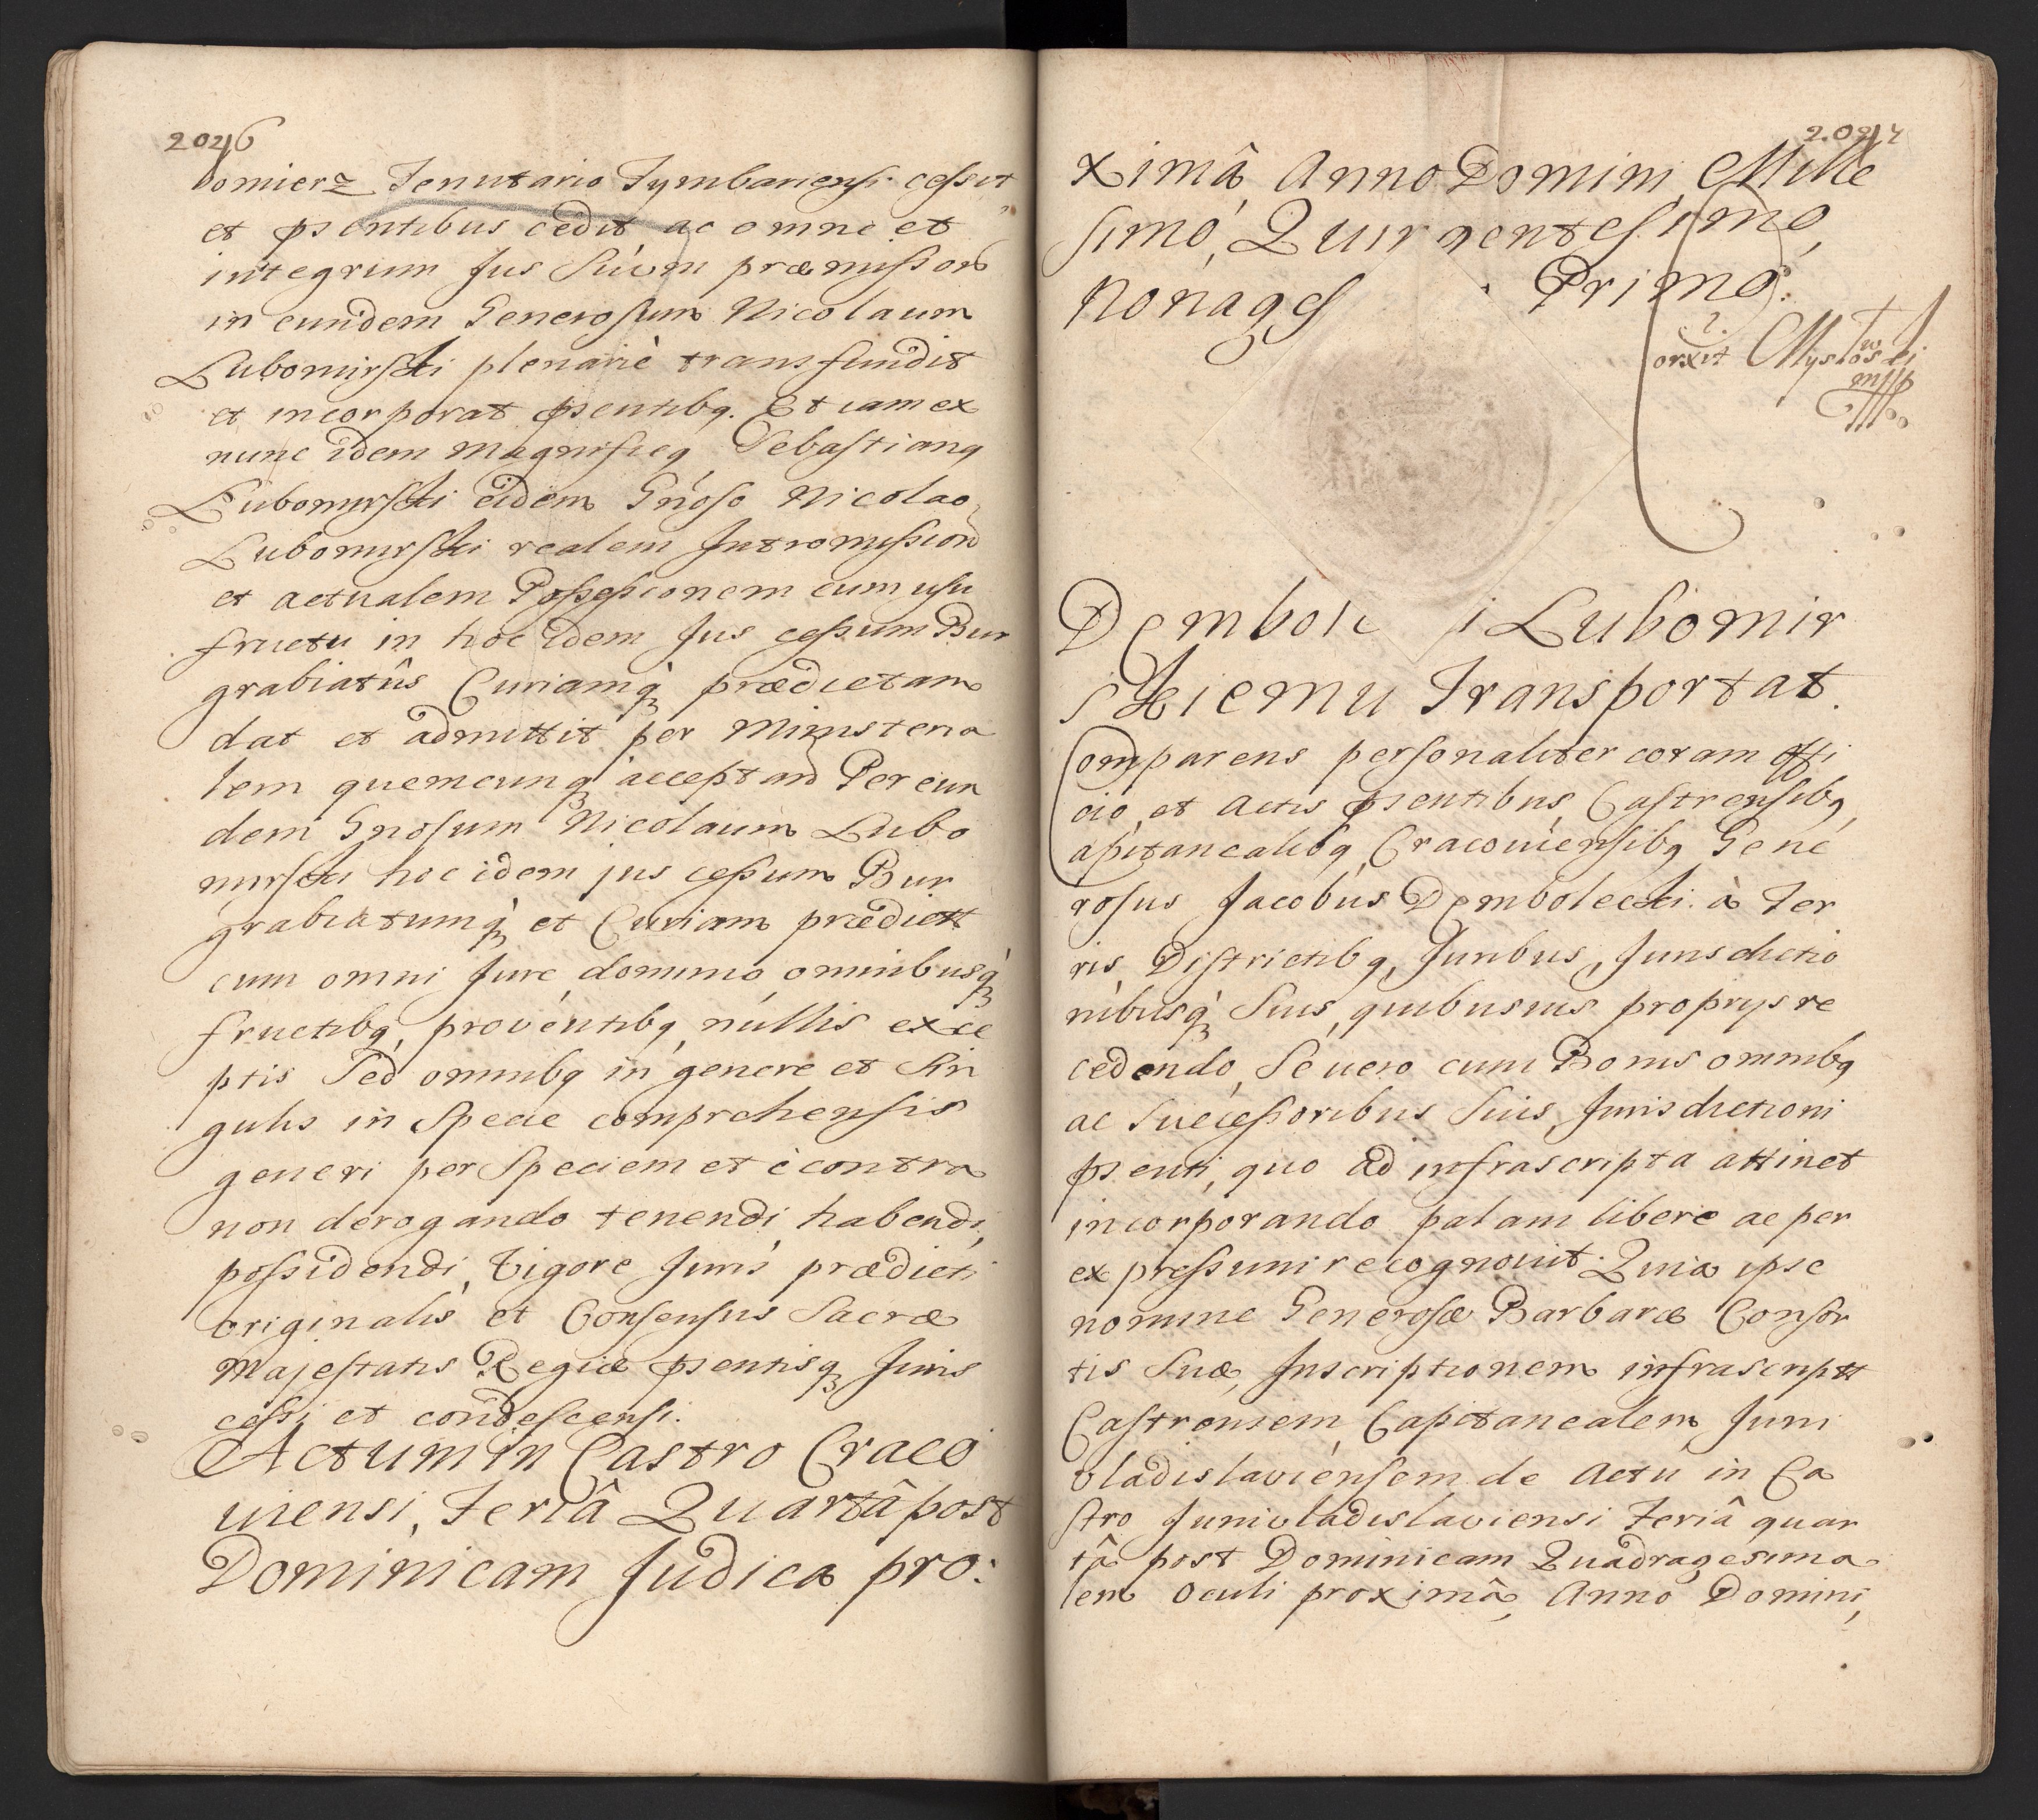 2026
domierz Tenutario Tymbariensi cessit
et psentibus cedit ac omne et
integrum Jus Suum præmissor
in eundem Generosum Nicolaum
Lubomirski plenariè transfundit
et incorporat psentibq. Et iam ex
nunc idem Magnificq Sebastianq
Lubomirski eidem Gnoso Nicolao
Lubomirski realem Intromission
et actualem Possessionem cum usu
fructu in hoc idem Jus cessum Bur
grabiatûs Curiamq prædictam
dat et admittit per Ministeria
lem quemcunq acceptand Per eun
dem Gnosum Nicolaum Lubo
mirski hoc idem jus cessum Bur
grabiatumq et Curiam prædictt
cum omni Jure dominio omnibusq
fructibq, proventibq nullis exce
ptis Sed omnibq in genere et Sin
gulis in Specie comprehensis
generi per Speciem et è contra
non derogando tenendi, habendi,
possidendi, Vigore Juris prædicti
originalis et Consensus Sacræ
Majestatis Regiæ psentisq Juris
cessi et condescensi.
Actum in Castro Craco
uiensi, Feriâ Quartâ post
Dominicam Judica pro:
2.027
ximâ Anno Domini Mille
simo, Quingentesimo,
Nonages Primo.
orxit Myszkowski
mpp
Dembole i Lubomir
skiemu Transportat.
Comparens personaliter coram offi
cio et Actis psentibus Castrensibq,
apitanealibq Cracouiensibq Gene
rosus Jacobus Dembolecki à Ter
ris Districtibq, Juribus, Jurisdictio
nibusq Suis, quibusuis proprys re
cedendo, Se uero cum Bonis omnibq
ac Successoribus Suis, Jurisdictioni
psenti, quo ad infrascripta attinet
incorporando palam libere ac per
expressum recognouit. Quia ipse
nomine Generosæ Barbaræ Consor
tis Suæ, Inscriptionem infrascriptt
Castrensem Capitanealem Juni
vladislaviensem de Actu in Ca
stro Junivladislaviensi Feriâ quar
tâ post Dominicam Quadragesima
lem Oculi proximâ, Anno Domini,